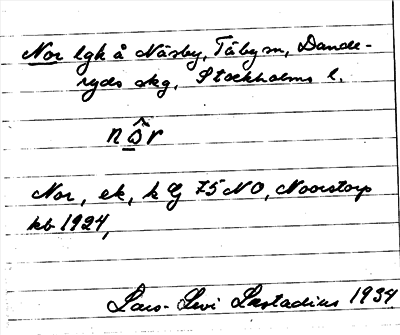 Nor lgh å Näsby, Täby sn, Dande-
ryds skg, Stockholms l.
nôr
Nor, ek, k G 75 NO, Noorstorp
kb 1924,
Lars-Levi Læstadius 1934